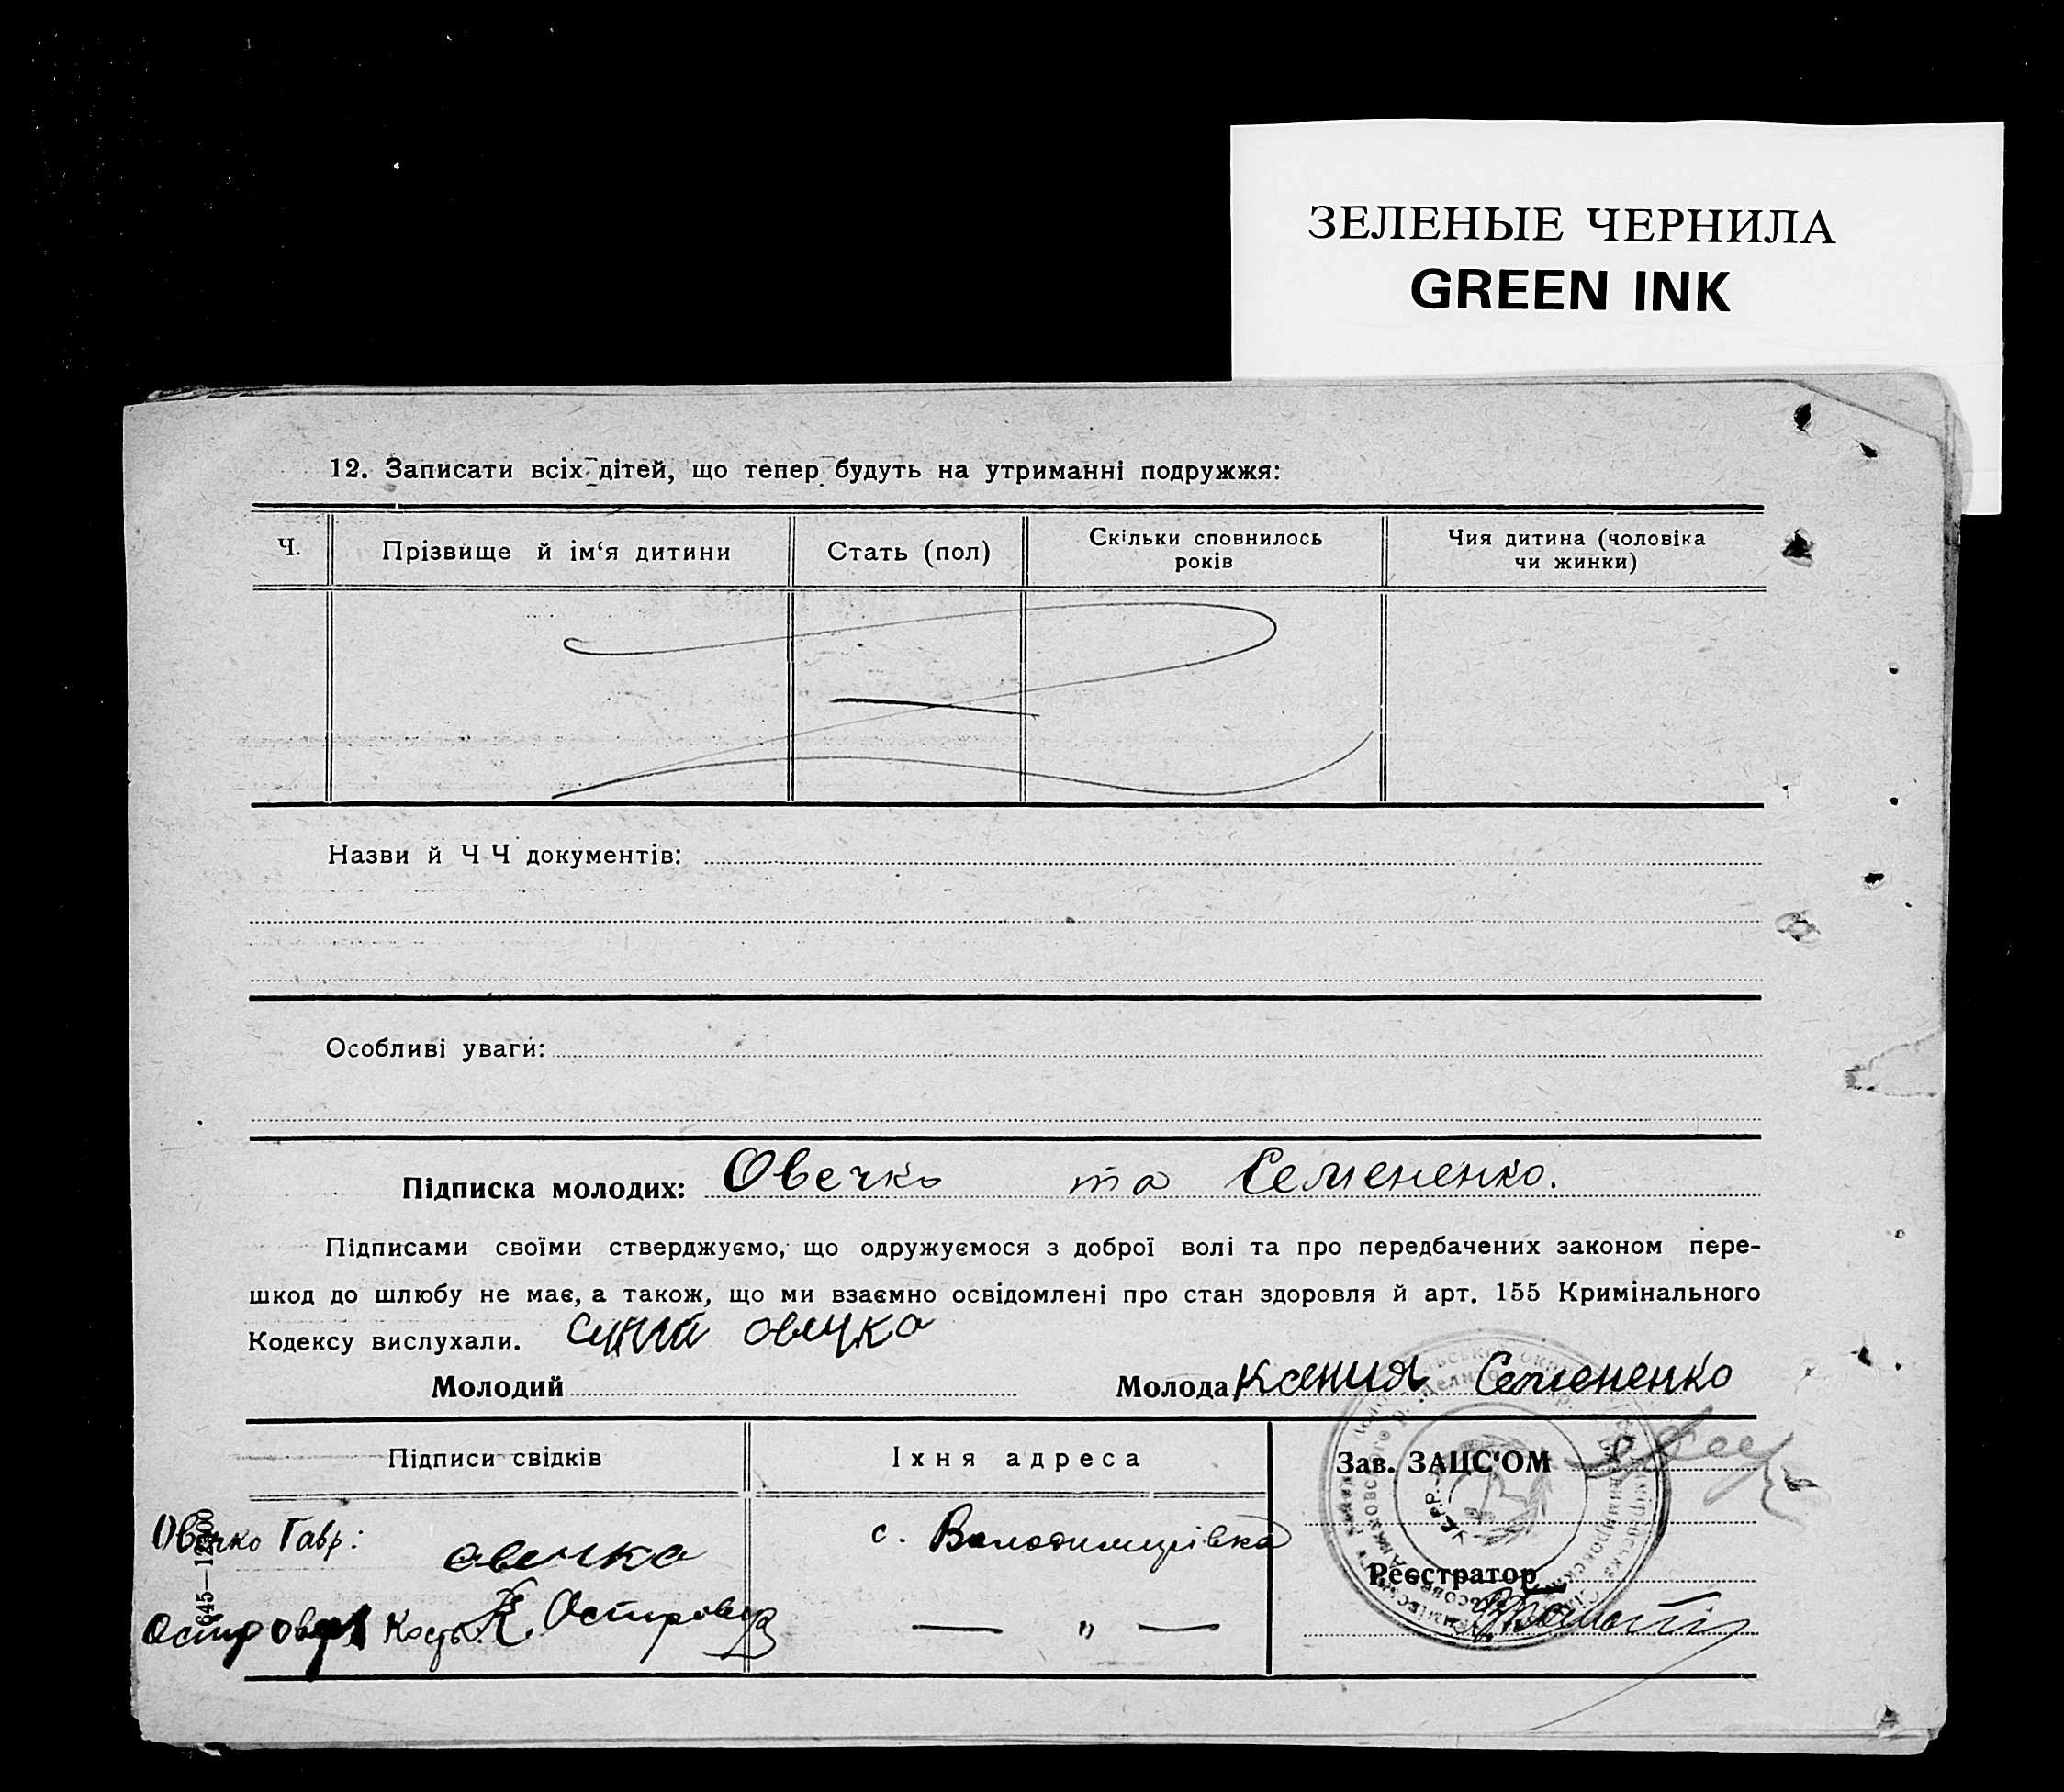 ЗЕЛЕНЫЕ ЧЕРНИЛА
GREEN INK
12. Записати всіх дітей, що тепер будуть на утриманні подружжя:
Ч.
Прізвище й ім‘я дитини
Стать (пол)
Скільки сповнилось
років
Чия дитина (чоловіка
чи жинки)
Назви й ЧЧ документів:
Особливі уваги:
Підписка молодих: Овечко та Семененко.
Підписами своїми стверджуємо, що одружуємося з доброї волі та про передбачених законом пере-
шкод до шлюбу не має, а також, що ми взаємно освідомлені про стан здоровля й арт. 155 Кримінального
Кодексу вислухали. овечка
Молодий
Молода Ксения Семененко
Підписи свідків
Їхня адреса
Зав. ЗАЦС‘ОМ
Овечко Гавр: овечка
с. Володимирівка
Реєстратор
К. Островер
— „ —